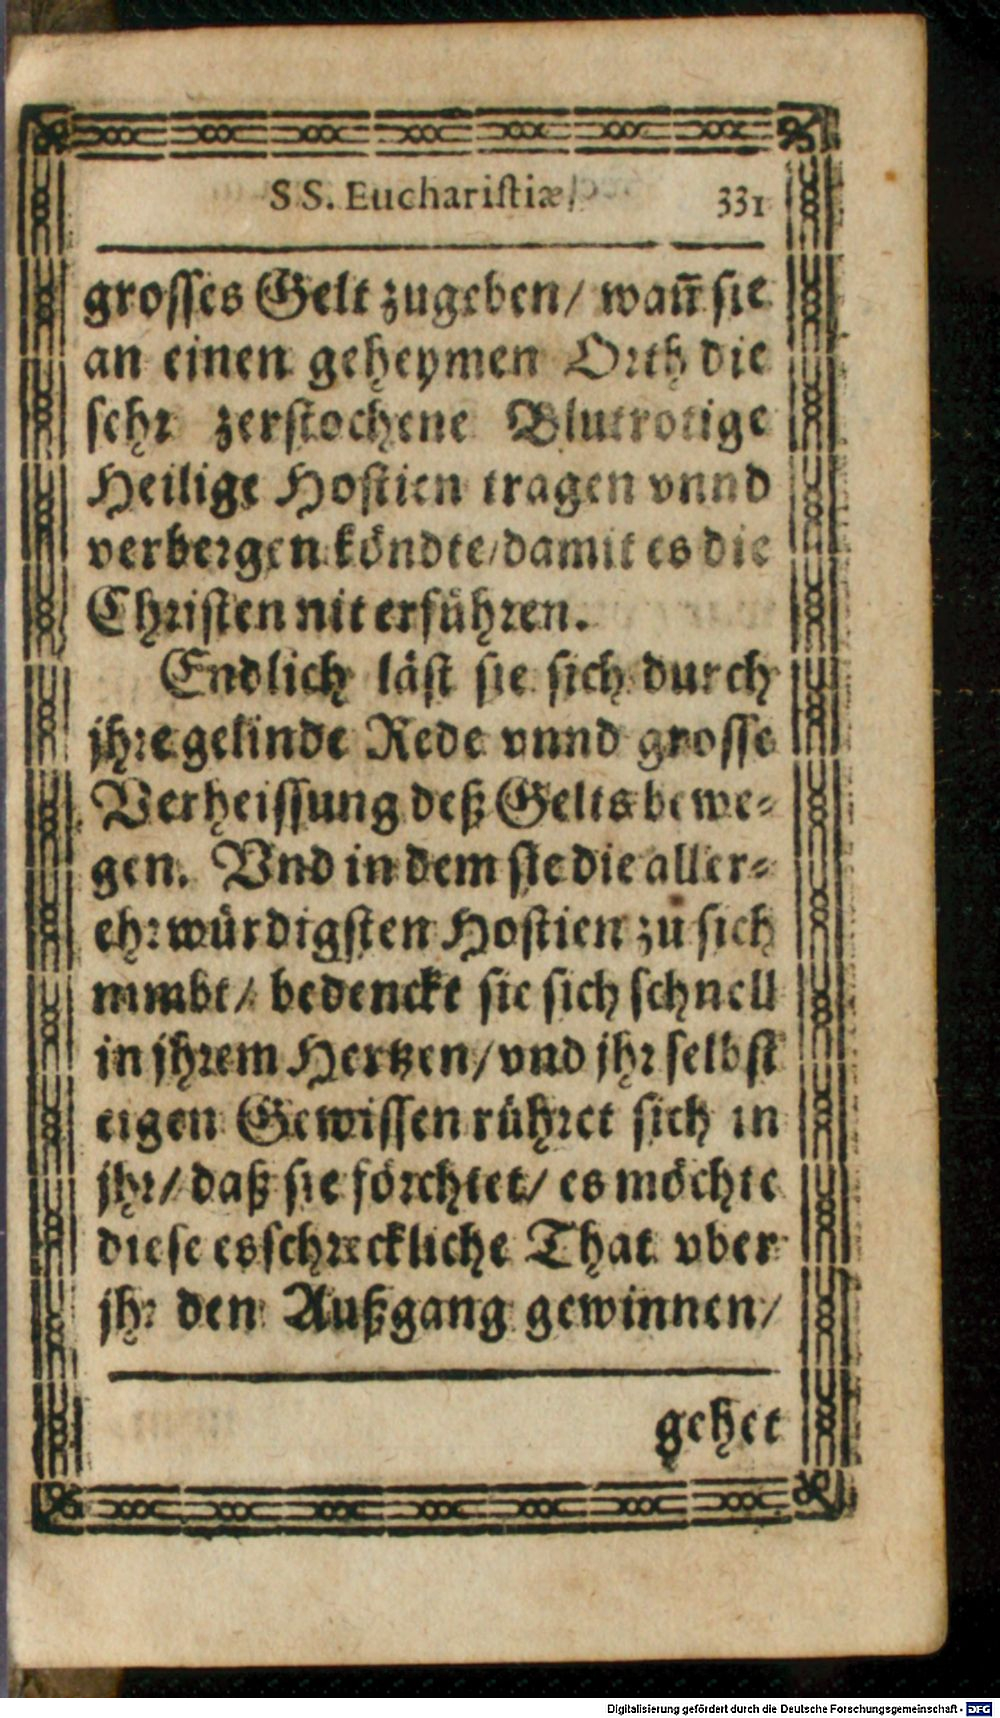 SS. Euchariſtiæ/ 331
groſſes Gelt zugeben/ wañ ſie
an einen geheymen Orth die
ſehr zerſtochene Blutrotige
Heilige Hoſtien tragen vnnd
verbergen köndte/damit es die
Chriſten nit erführen.
Endlich läſt ſie ſich durch
jhre gelinde Rede vnnd groſſe
Verheiſſung deß Gelts bewe⸗
gen. Vnd in dem ſie die aller⸗
ehrwürdigſten Hoſtien zu ſich
nimbt/ bedenckt ſie ſich ſchnell
in jhrem Hertzen/ vnd jhr ſelbſt
eigen Gewiſſen rühret ſich in
jhr/ daß ſie förchtet/ es möchte
dieſe esſchreckliche That vber
jhr den Außgang gewinnen/
gehet
Digitalisierung gefördert durch die Deutsche Forschungsgemeinschaft - DFG